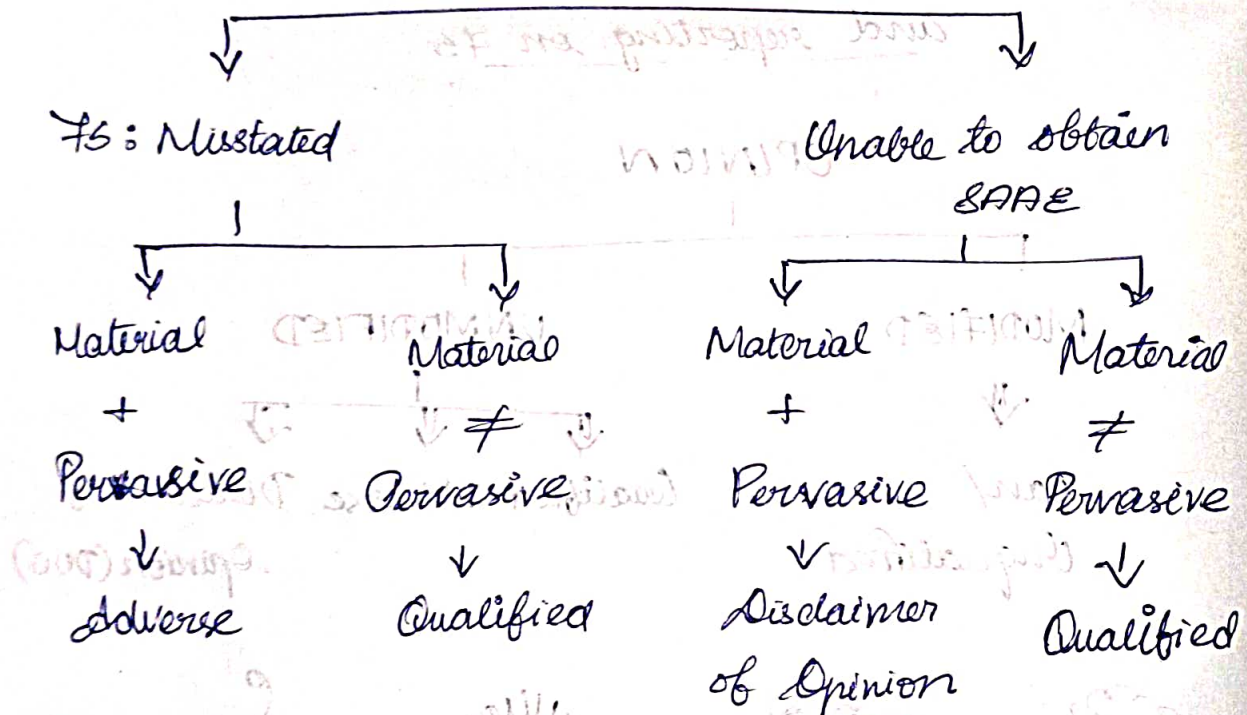 FS: Misstated
Unable to obtain
SAAE
Material
+
Pervasive
↓
Adverse
Material
≠
Pervasive
↓
Qualified
Material
+
Pervasive
↓
Disclaimer
of Opinion
Material
≠
Pervasive
↓
Qualified